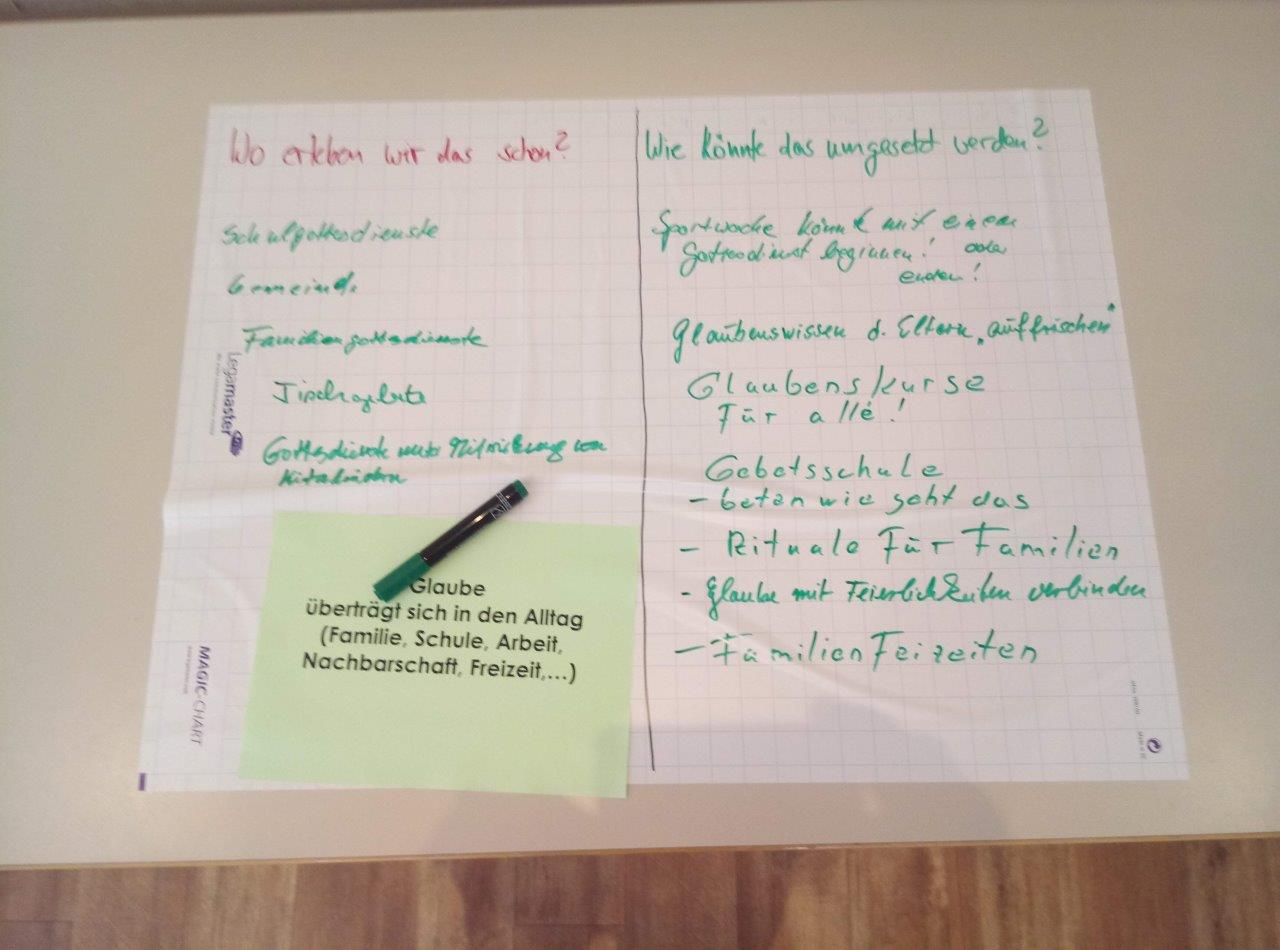 Wo erleben wir das schon?
Schulgottesdienste
Gemeinde
Familiengottesdienste
Tischgebete
Gottesdienste unter Mitwirkung von
Kitakindern
Glaube
überträgt sich in den Alltag
(Familie, Schule, Arbeit,
Nachbarschaft, Freizeit,...)
Wie könnte das umgesetzt werden?
Sportwoche könnte mit einem
Gottesdienst beginnen! oder
enden!
Glaubenswissen d. Eltern „auffrischen"
Glaubenskurse
für alle!
Gebetsschule
- beten wie geht das
- Rituale für Familien
- Glaube mit Feierlichkeiten verbinden
- FamilienFreizeiten
Legamaster
MAGIC-CHART